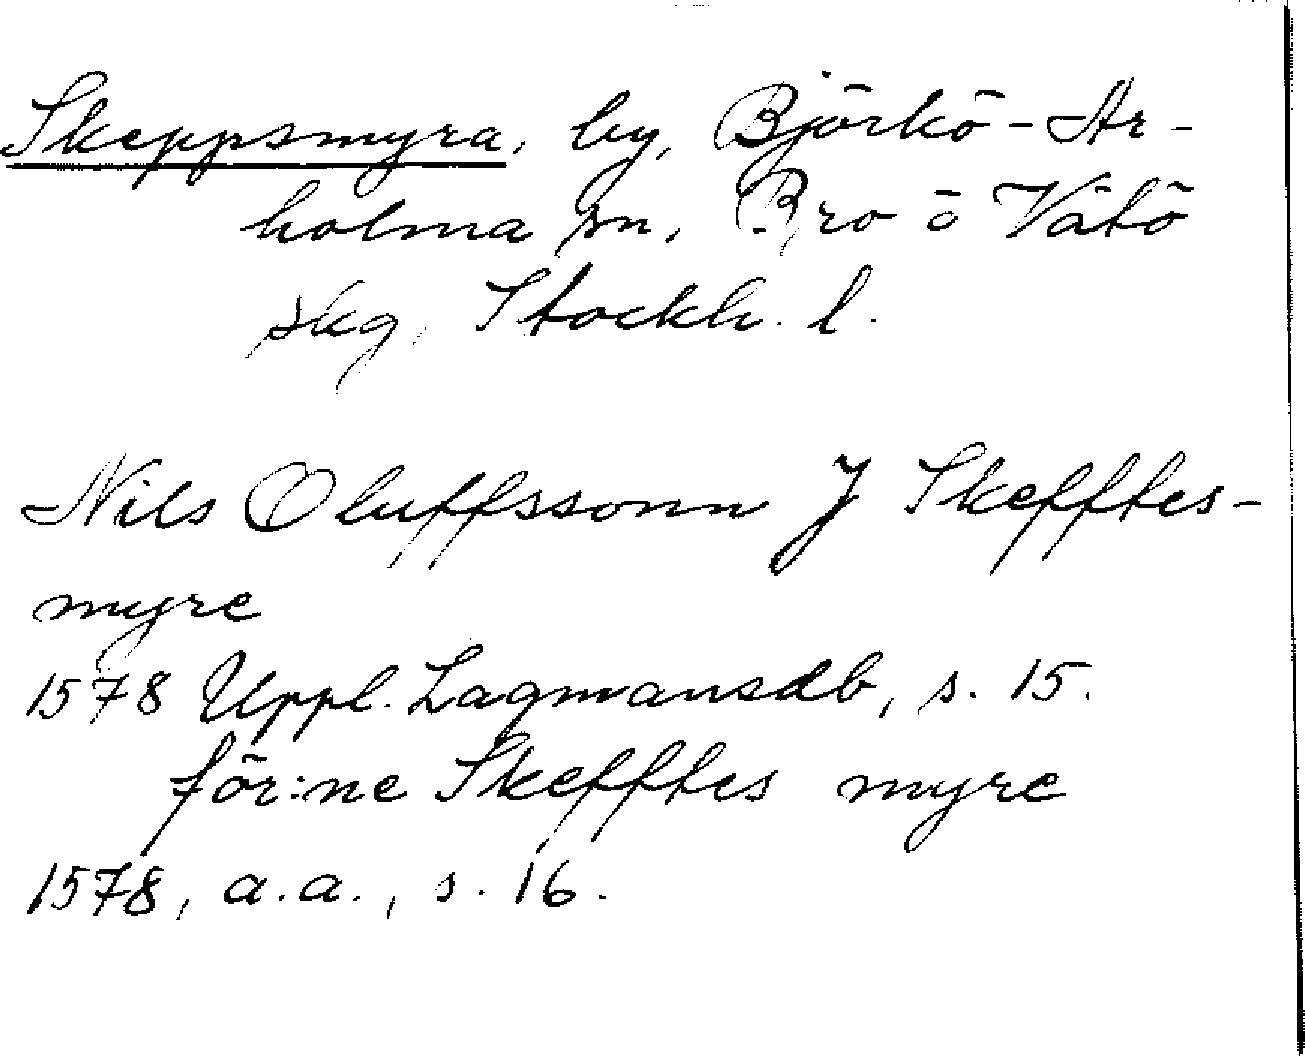 Skeppsmyra, by, Björkö-Ar-
holma sn, Bro o Vätö
skg, Stockh. l.
Nils Oluffssonn J Skefftes-
myre
1578 Uppl. Lagmansdb, s. 15.
för:ne Skefftes myre
1578, a.a., s. 16.